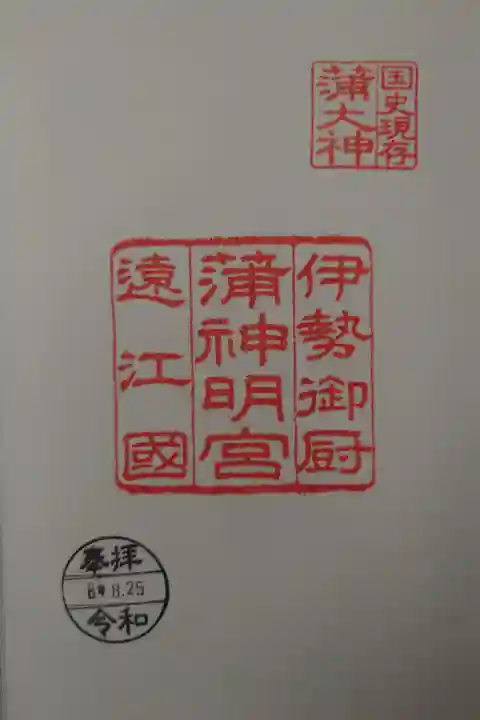 国史現存
蒲大神
伊勢御厨
蒲神明宮
遠江國
奉拝
8.25
令和